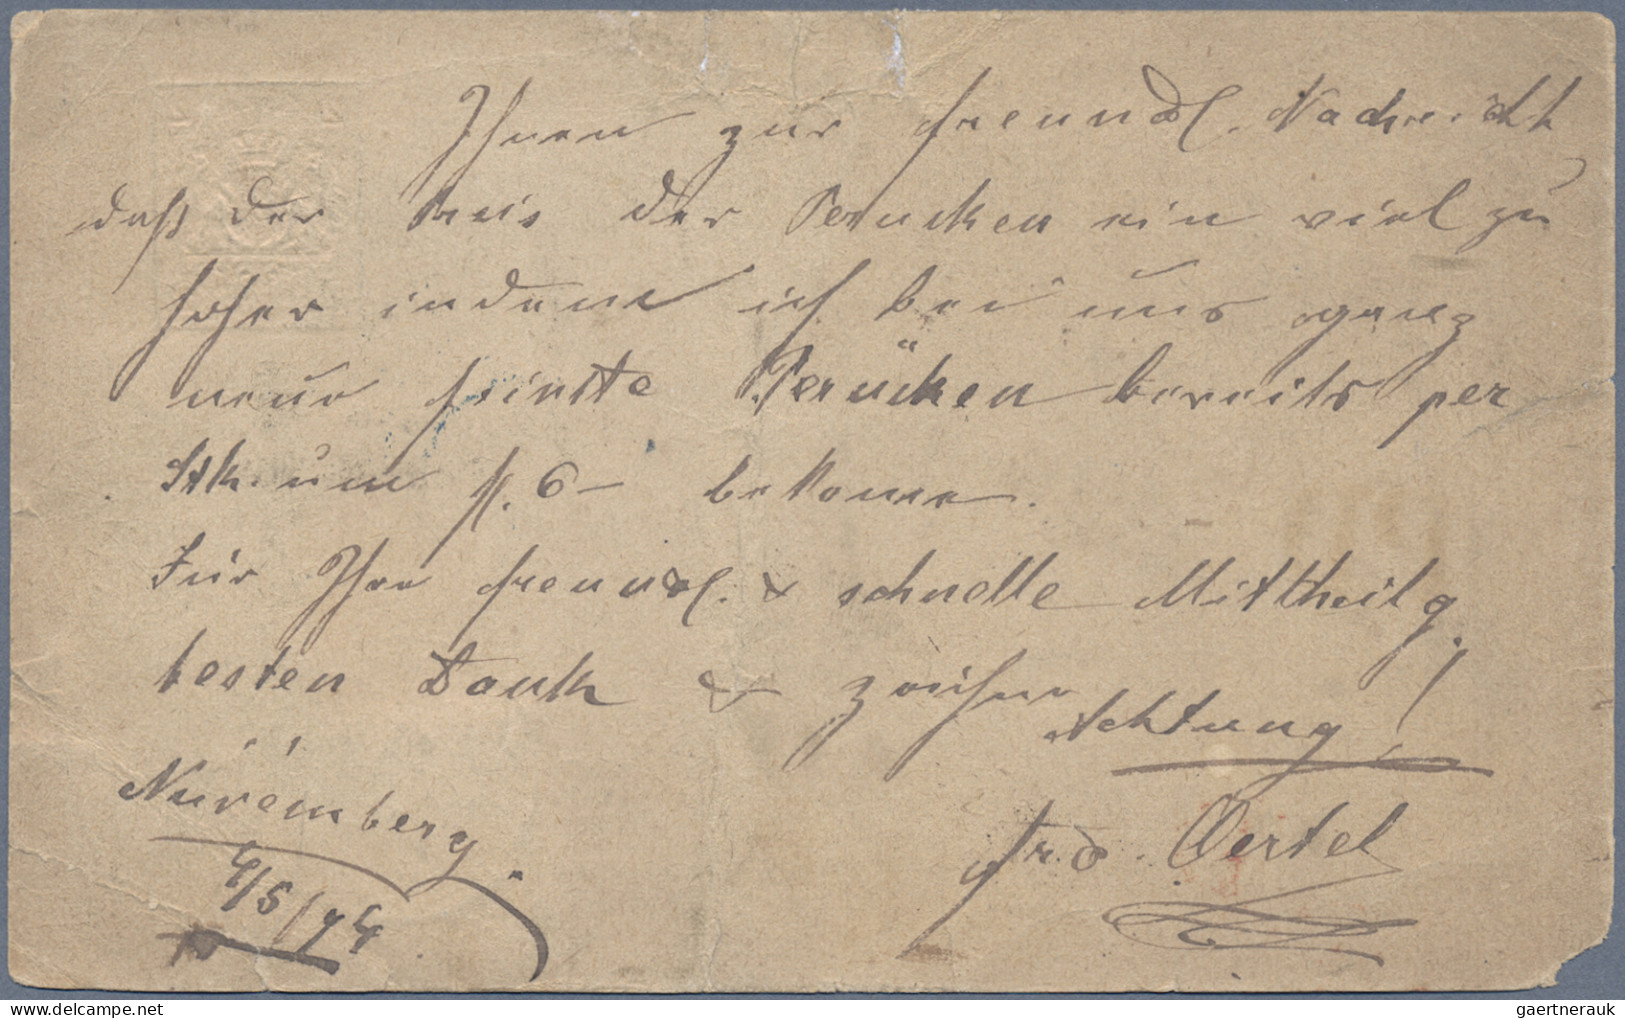 Ihnen zur freundl. Nachricht
daß der Preis der Perucken ein viel zu
hoher indem ich bei uns ganz
neue feinste Perücken bereits per
Stk. um fl. 6 – bekomme.
Für Ihre freundl. & schnelle Mittheilg.
besten Dank & zeichne
Achtung!
Nüremberg.
4/5/74
Frd. Oertel
gaertnerauk